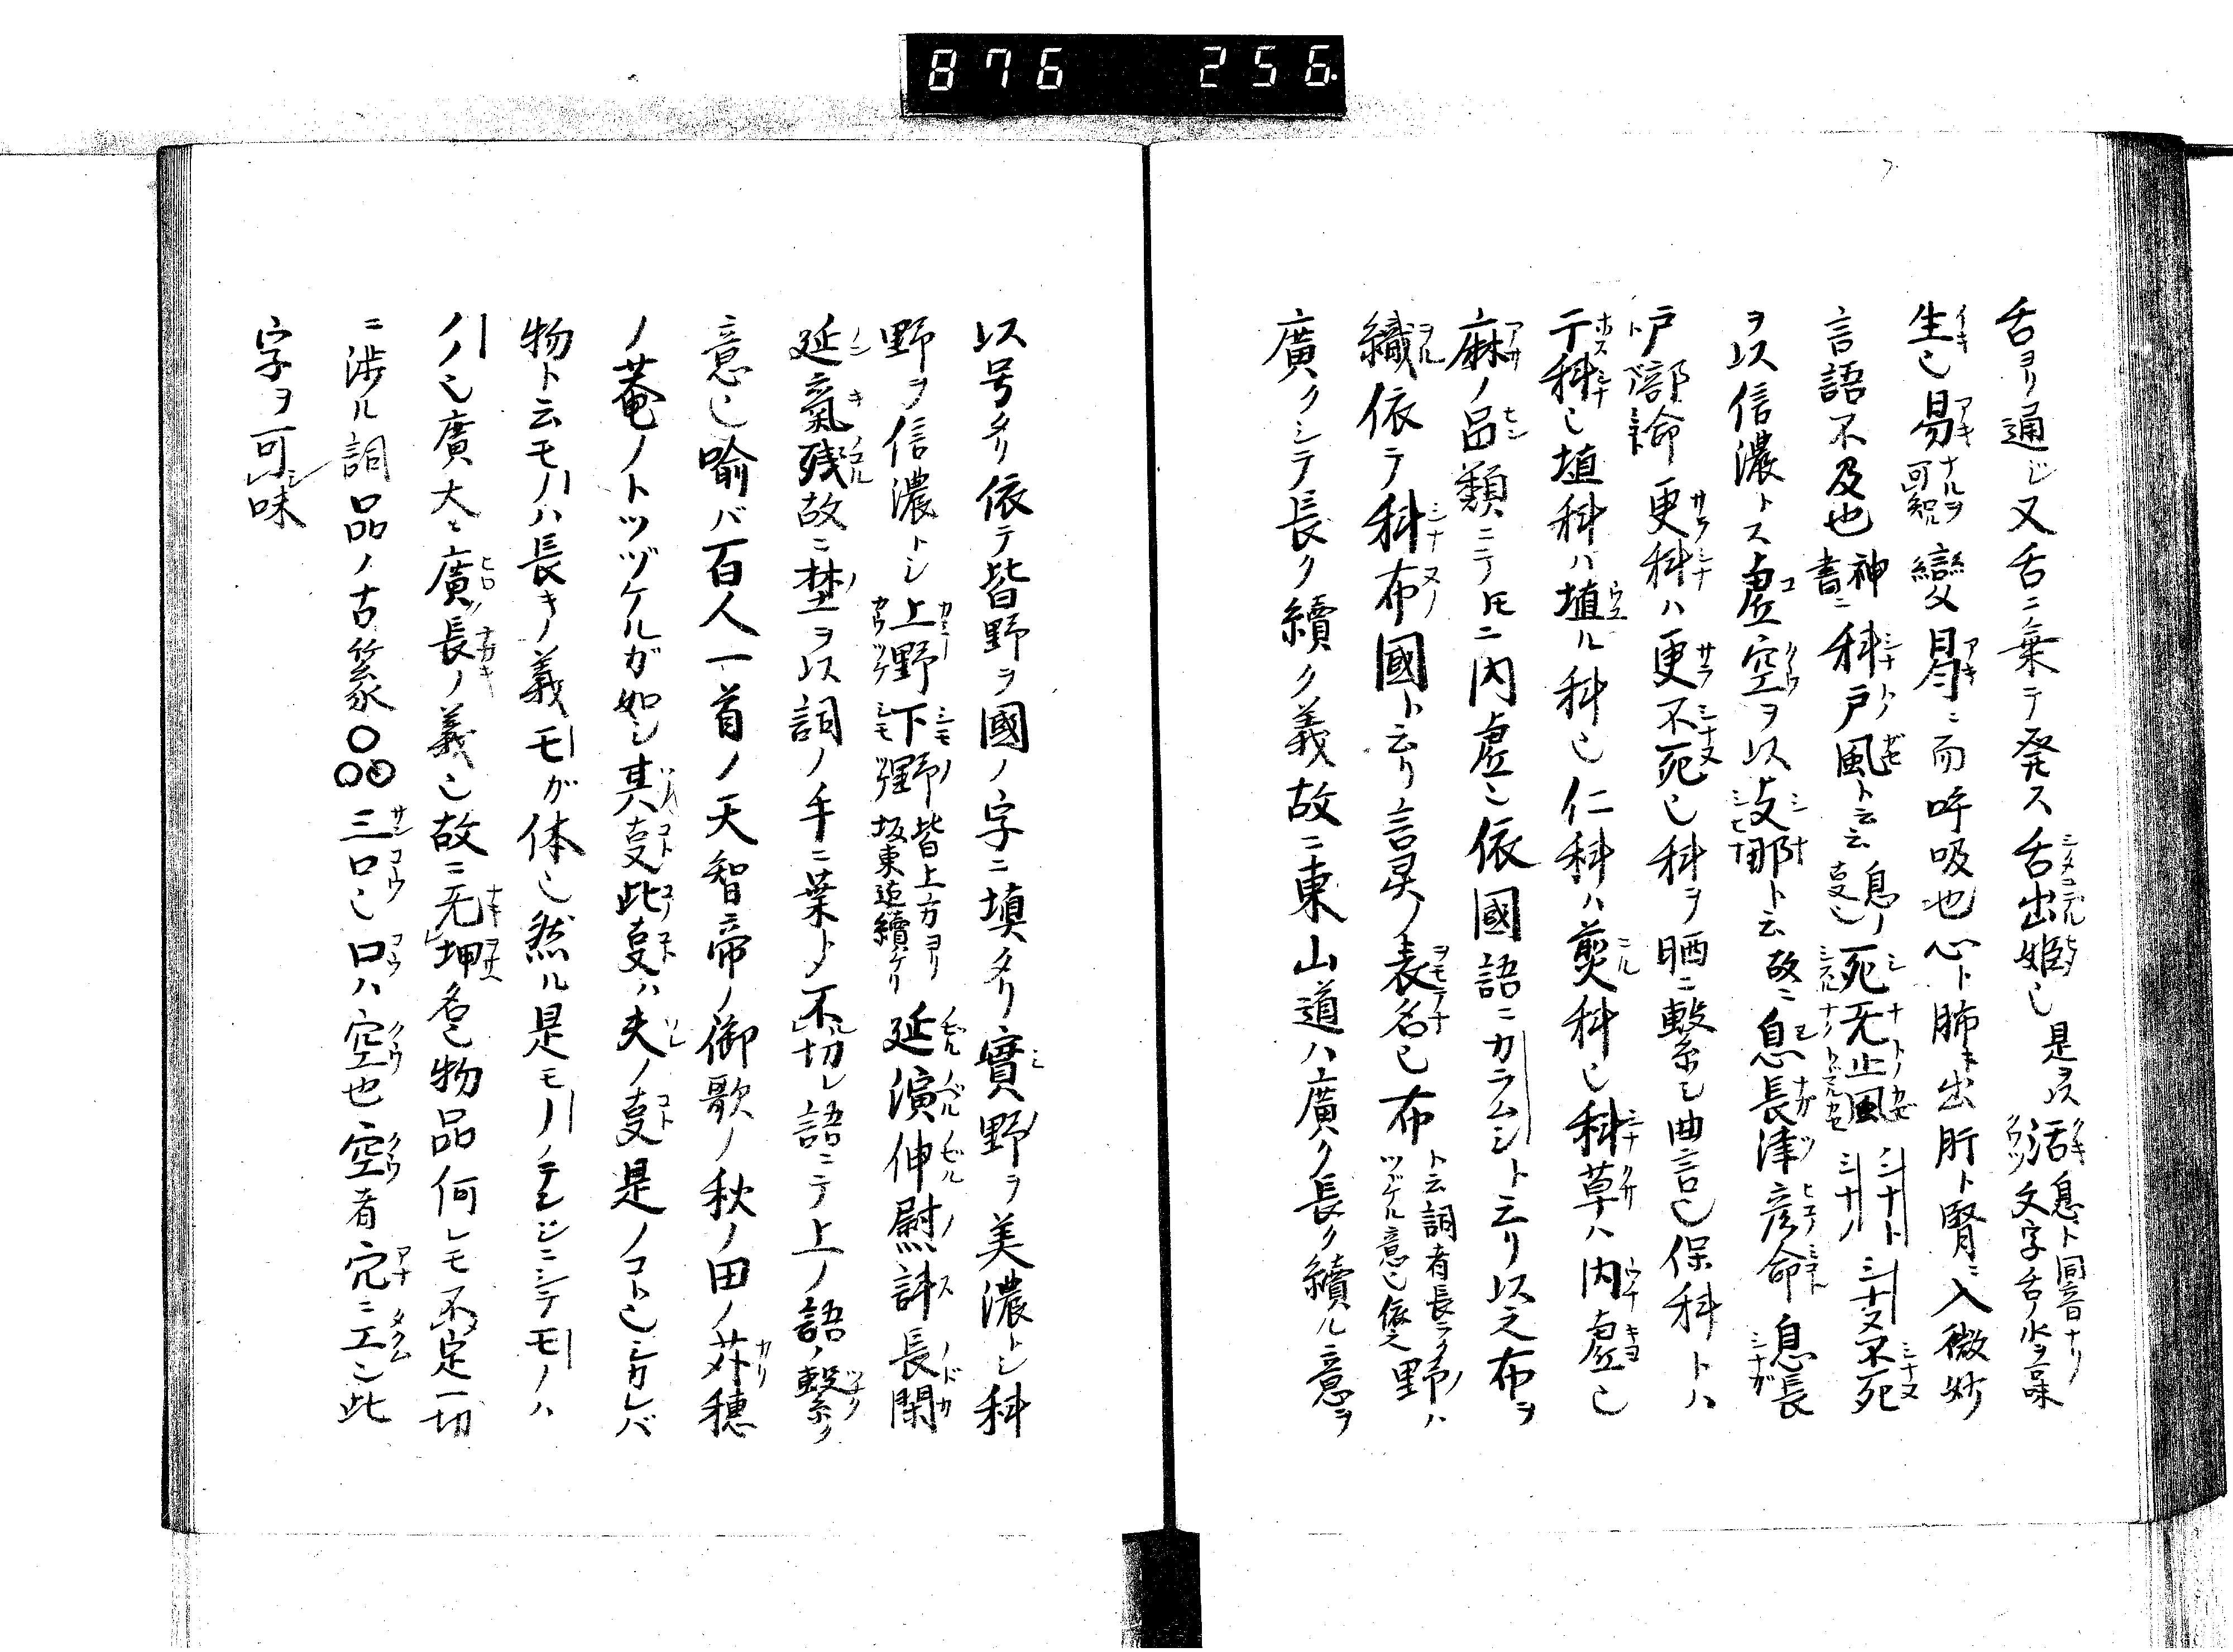 876 256.
舌ヨリ通ジ又舌ニ乗テ発ス舌出姫也是ヲ以活息ト同音ナリ文字舌ノ水ヲ味
生也易ナルヲ可知変易ニ而呼吸也心ト肺ハ出肝ト腎ニ入微妙
言語不及也神書ニ科戸風ト云云息ノ事也死无止風シナトシナノシナヌ不死
ヲ以信濃トス虚空ヲ以支那ト云故ニ息長津彦命息長
戸部命更科ハ更不死也科ヲ晒ニ繋シ曲言也保科トハ
干科也埴科ハ埴ル科也仁科ハ煎科也科草ハ内虚也
麻ノ品類ニテ圧ニ内虚ニ依國語ニカラムシト云リ以之布ヲ
織依テ科布國ト云リ言灵ノ表名也布ト云詞者長ククツヾケル意也野ハ
廣クシテ長ク續ク義故ニ東山道ハ廣ク長ク續ル意ヲ
以号タリ依テ皆野ヲ國ノ字ニ填タリ實野ヲ美濃トシ科
野ヲ信濃トシ上野下野皆上方ヨリ坂東迄續ケリ延演伸慰長閑
延氣残故ニ埜ヲ以詞ノ手ニ葉トメ不切レ語ニテ上ノ語ノ繋ク
意也喩バ百人一首ノ天智帝ノ御歌ノ秋ノ田ノ苅穂
ノ菴ノトツヾケルガ如シ其事此事ハ夫ノ事是ノコト也シカレバ
物ト云モノハ長キノ義モガ体也然ル是モノノテニシテモノハ
ノ也廣大ニ廣長ノ義也故ニ无坤名也物品何レモ不定一切
ニ渉ル詞品ノ古篆〇〇〇三口也口ハ空也空者穴ニエニ此
字ヲ可味